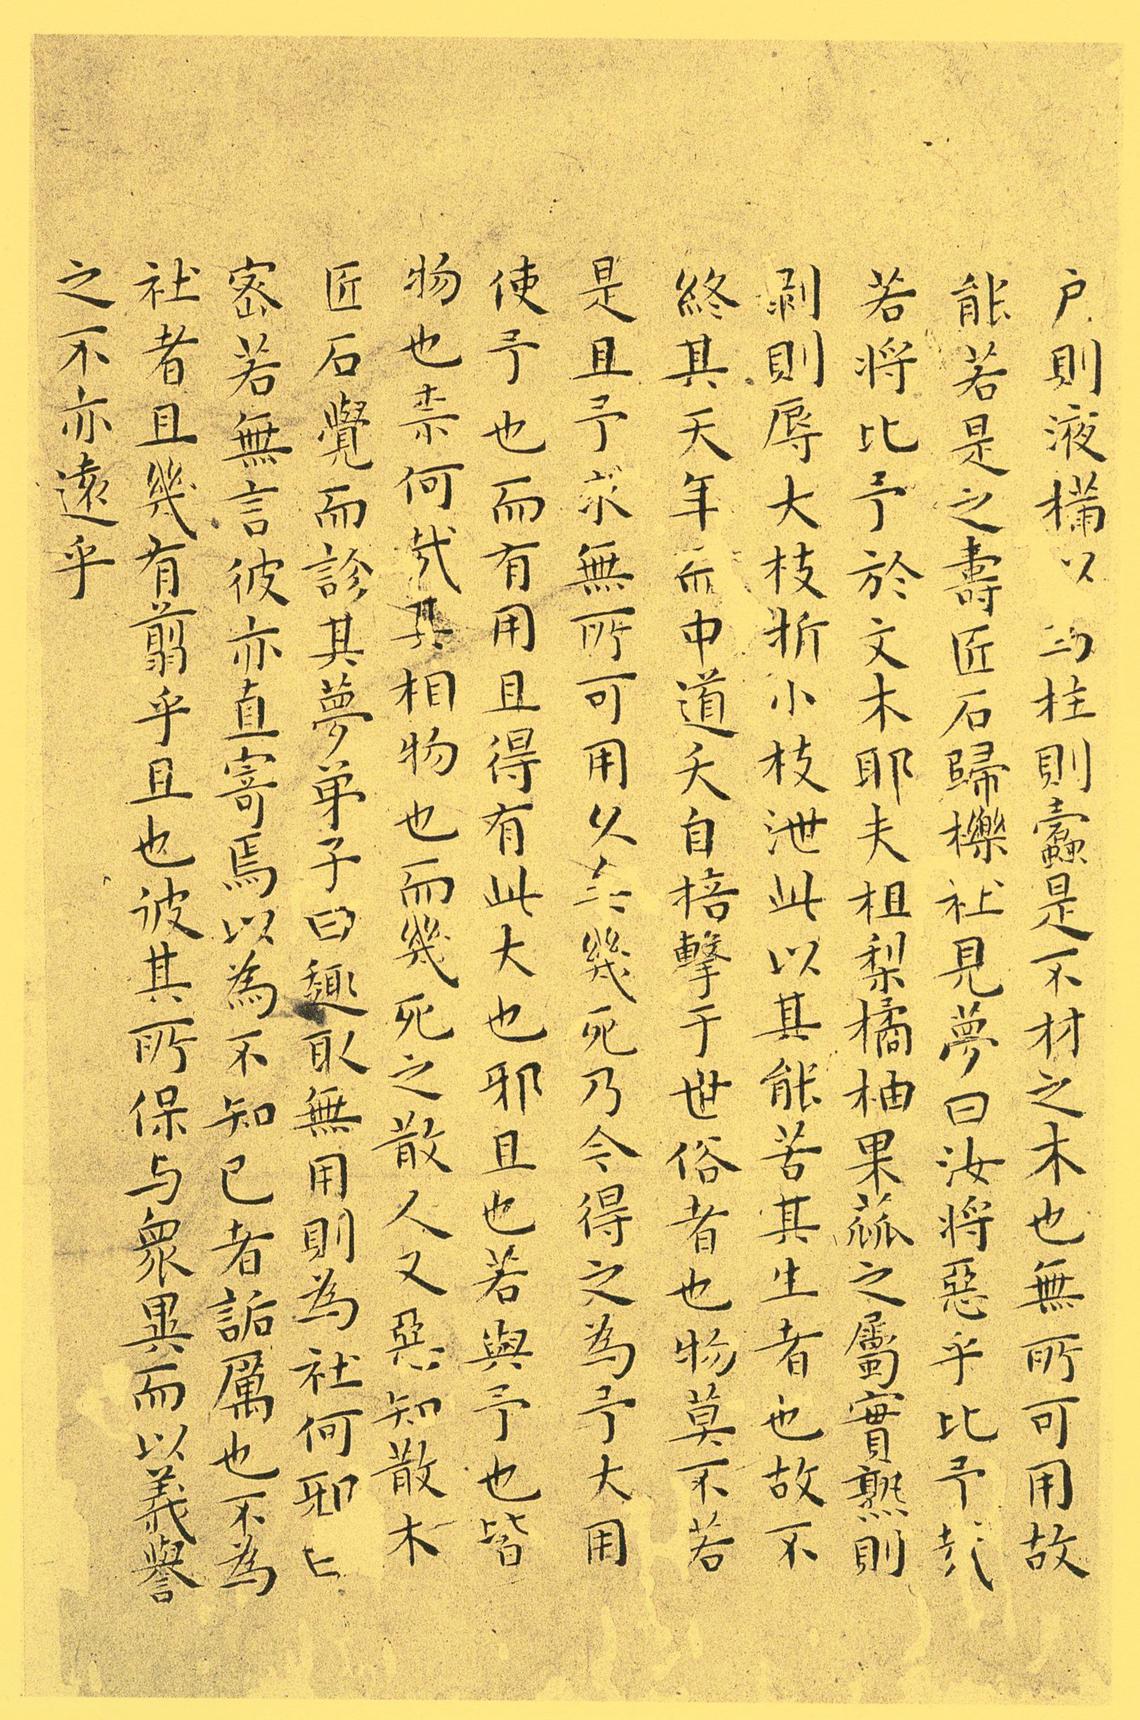 户則液樠以為柱則蠹是不材之木也無所可用故
能若是之壽匠石歸櫟社見夢曰汝將惡乎比予㢤
若將比予於文木耶夫柤梨橘柚果蓏之屬實熟則
剥則辱大枝折小枝泄此以其能苦其生者也故不
終其天年而中道夭自掊擊于世俗者也物莫不若
是且予求無所可用久矣幾死乃今得之為予大用
使予也而有用且得有此大也邪且也若與予也皆
物也柰何哉其相物也而幾死之散人又惡知散木
匠石覺而診其夢弟子曰趣取無用則為社何邪曰
宻若無言彼亦直寄焉以為不知己者詬厲也不為
社者且幾有翦乎且也彼其所保与衆異而以義譽
之不亦遠乎